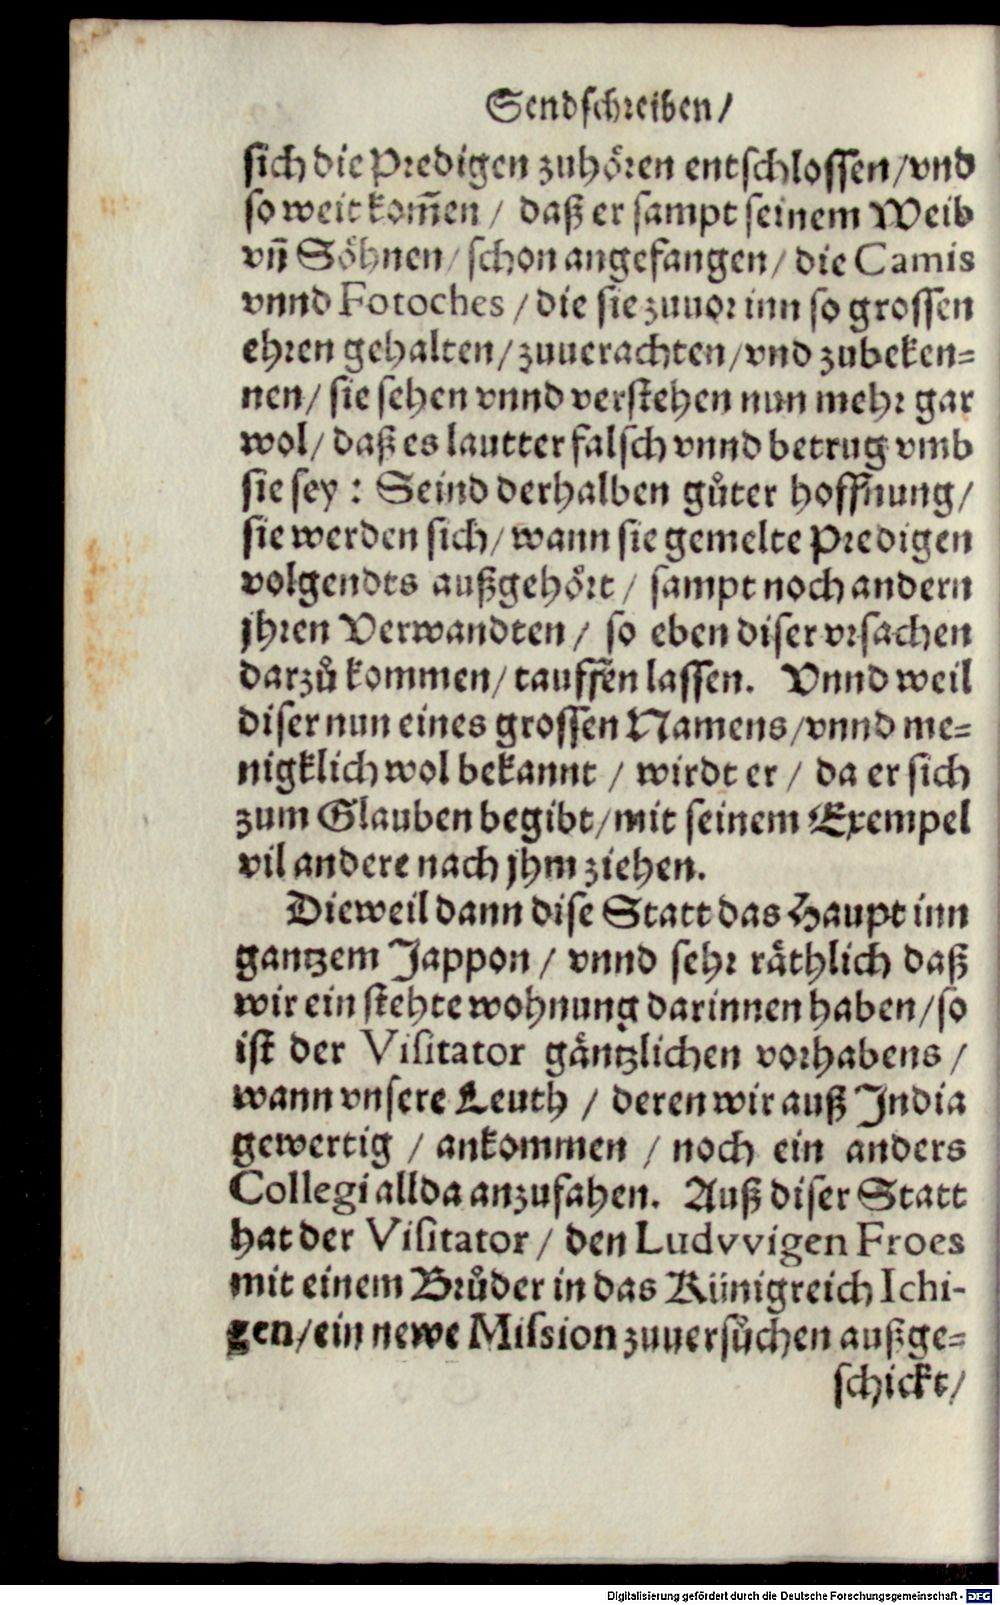 Sendschreiben/
sich die Predigen zuhören entschlossen/vnd
so weit kom̃en/ daß er sampt seinem Weib
vñ Söhnen/ schon angefangen/ die Camis
vnnd Fotoches/ die sie zuuor inn so grossen
ehren gehalten/ zuuerachten/vnd zubeken=
nen/ sie sehen vnnd verstehen nun mehr gar
wol/ daß es lautter falsch vnnd betrug vmb
sie sey: Seind derhalben gůter hoffnung/
sie werden sich/ wann sie gemelte Predigen
volgendts außgehört/ sampt noch andern
jhren Verwandten/ so eben diser vrsachen
darzů kommen/ tauffen lassen. Vnnd weil
diser nun eines grossen Namens/vnnd me=
nigklich wol bekannt/ wirdt er/ da er sich
zum Glauben begibt/mit seinem Exempel
vil andere nach jhm ziehen.
Dieweil dann dise Statt das Haupt inn
gantzem Jappon/ vnnd sehr räthlich daß
wir ein stehte wohnung darinnen haben/so
ist der Visitator gäntzlichen vorhabens/
wann vnsere Leuth/ deren wir auß India
gewertig/ ankommen/ noch ein anders
Collegi allda anzufahen. Auß diser Statt
hat der Visitator/ den Ludvvigen Froes
mit einem Brůder in das Künigreich Ichi-
gen/ein newe Mission zuuersůchen außge=
schickt/
Digitalisierung gefördert durch die Deutsche Forschungsgemeinschaft - DFG